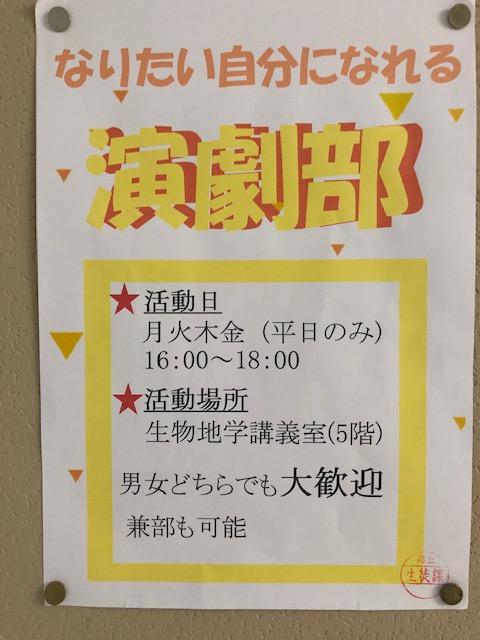 なりたい自分になれる
演劇部
★活動日
月火木金（平日のみ）
16:00～18:00
★活動場所
生物地学講義室(5階)
男女どちらでも大歓迎
兼部も可能
生徒課